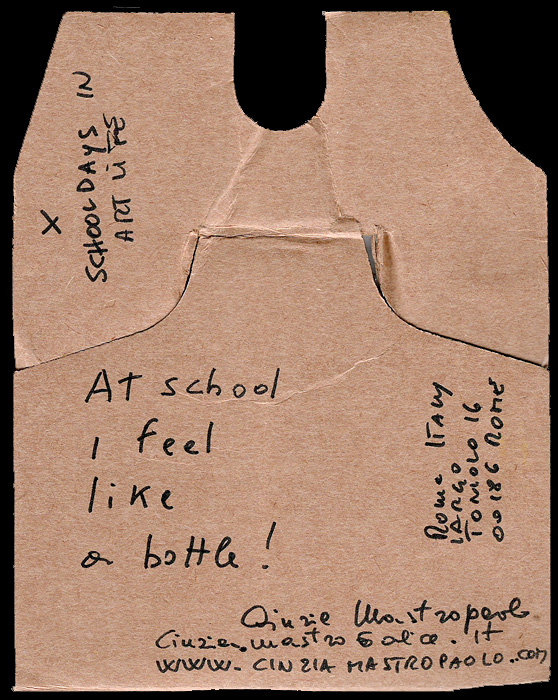 X
SCHOOL DAYS IN
ART LiFE
At school
I feel
like
a bottle!
Rome ITALY
LARGO
TONIOLO 16
00186 ROME
Cinzia Mastropaolo
Cinzia.mastro@alice.it
WWW. CINZIA MASTROPAOLO..com